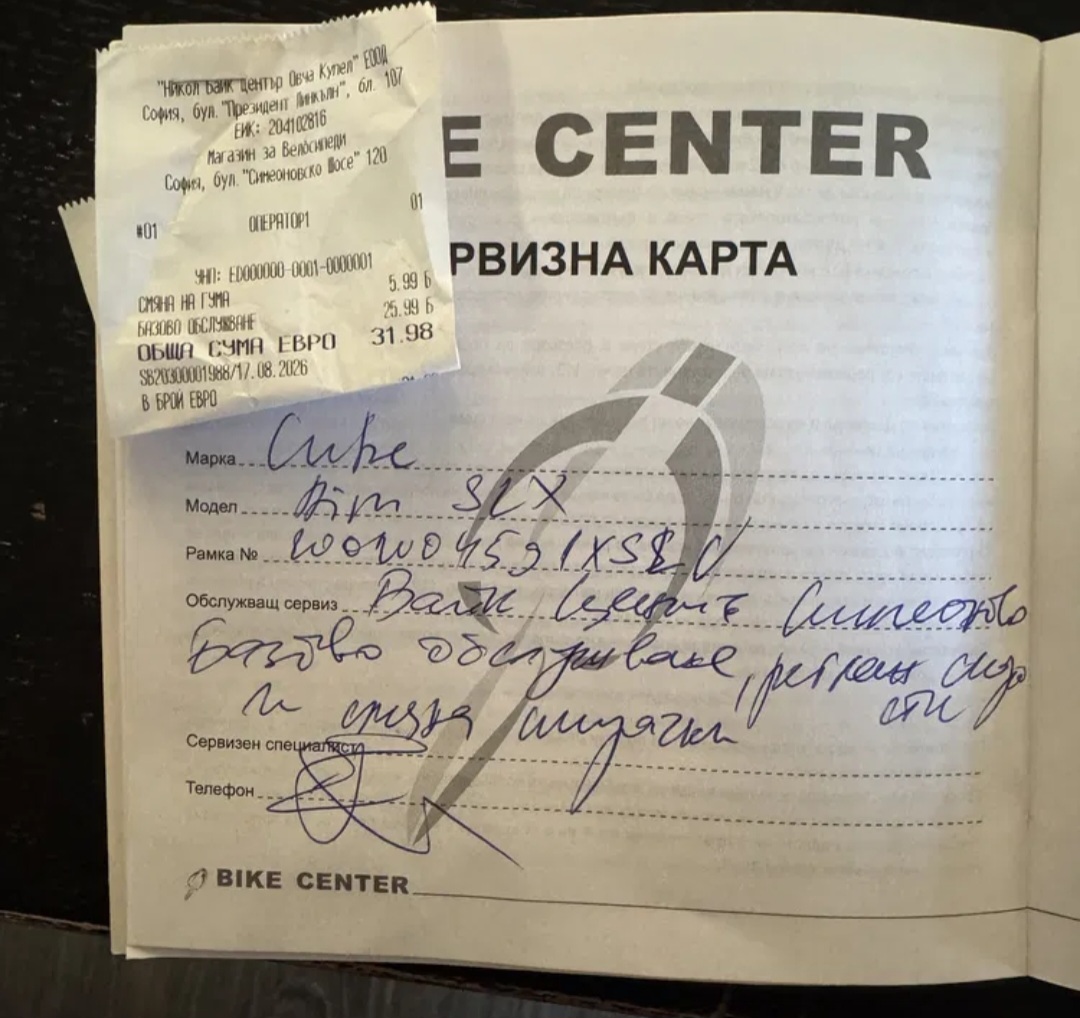 "Никол Байк Център Овча Купел" ЕООД
София, бул. "Президент Линкълн", бл. 107
ЕИК: 204102816
Магазин за Велосипеди
София, бул. "Симеоновско Шосе" 120
#01 ОПЕРАТОР1 01
УНП: ED000000-0001-0000001
СМЯНА НА ГУМА 5.99 Б
БАЗОВО ОБСЛУЖВАНЕ 25.99 Б
ОБЩА СУМА ЕВРО 31.98
SB20300001988/17.08.2026
В БРОЙ ЕВРО
E CENTER
РВИЗНА КАРТА
Марка Cube
Модел Aim SLX
Рамка №
Обслужващ сервиз Байк Център Симеоново
Базово обслужване, скоро
и смяна
Сервизен специалист
Телефон
BIKE CENTER